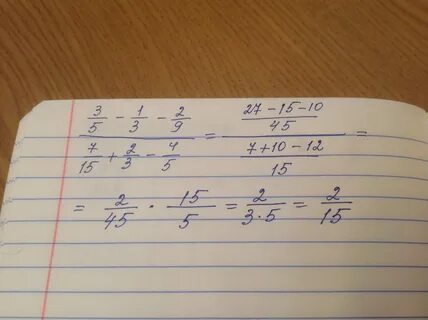 3/5 - 1/3 - 2/9 / 7/15 + 2/3 - 4/5 = 27 - 15 - 10 / 45 / 7 + 10 - 12 / 15 =
= 2/45 · 15/5 = 2/3·5 = 2/15